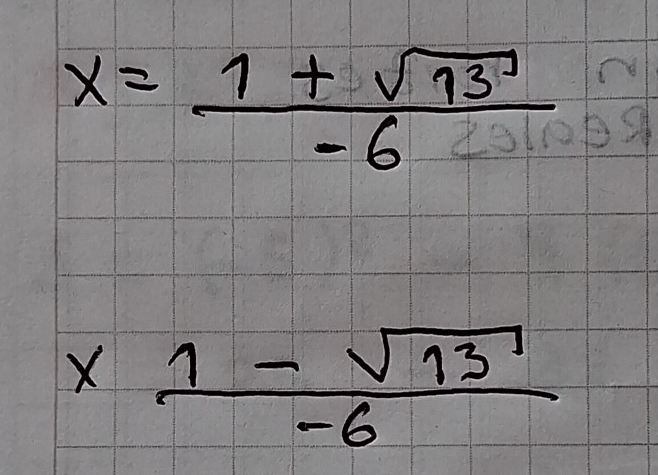 x = 1 + √13
-6
x 1 - √13
-6